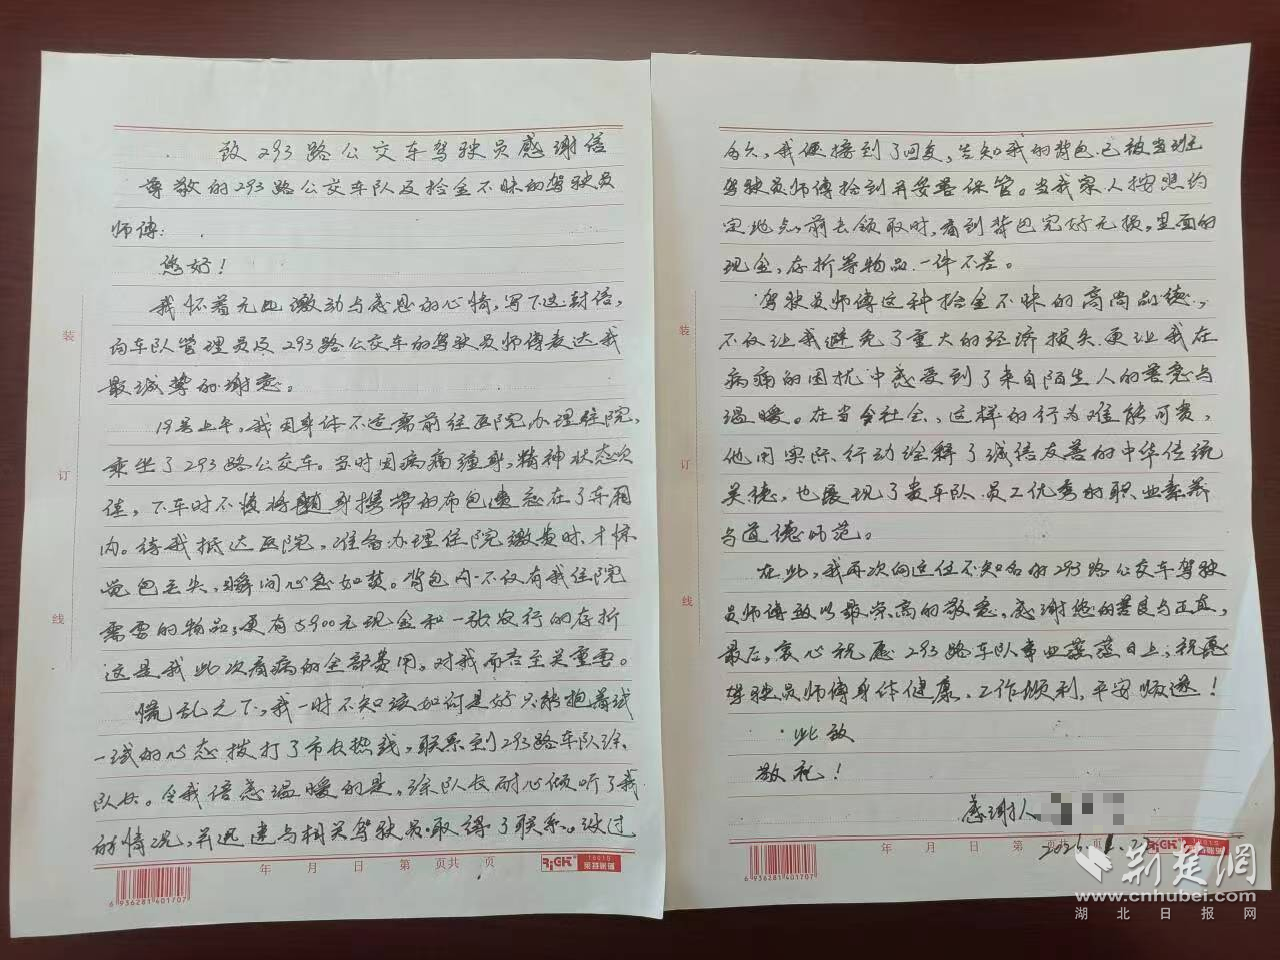 致293路公交车驾驶员感谢信
尊敬的293路公交车队及拾金不昧的驾驶员
师傅：
您好！
我怀着无比激动与感恩的心情，写下这封信，
向车队管理员及293路公交车的驾驶员师傅表达我
最诚挚的谢意。
19号上午，我因身体不适需前往医院办理住院，
乘坐了293路公交车。当时因病痛缠身，精神状态欠
佳，下车时不慎将随身携带的布包遗忘在了车厢
内。待我抵达医院，准备办理住院缴费时，才惊
觉包丢失，瞬间心急如鼓。背包内不仅有我住院
需要的物品，更有5900元现金和一张农行的存折
这是我此次看病的全部费用，对我而言至关重要。
慌乱之下，我一时不知该如何是好只能抱着试
一试的心态拨打了市长热线，联系到293路车队徐
队长。令我倍感温暖的是，徐队长耐心倾听了我
的情况，并迅速与相关驾驶员取得了联系。没过
装
订
线
年 月 日 第 页共 页
RiCH
16015
莱特纸铺
6 936281 401707
多久，我便接到了回复，告知我的背包已被当班
驾驶员师傅拾到并妥善保管。当我家人按照约
定地点前去领取时，看到背包完好无损，里面的
现金，存折等物品一件不差。
驾驶员师傅这种拾金不昧的高尚品德，
不仅让我避免了重大的经济损失，更让我在
病痛的困扰中感受到了来自陌生人的善意与
温暖。在当今社会，这样的行为难能可贵，
他用实际行动诠释了诚信友善的中华传统
美德，也展现了贵车队员工优秀的职业素养
与道德风范。
在此，我再次向这位不知名的293路公交车驾驶
员师傅致以最崇高的敬意，感谢您的善良与正直，
最后，衷心祝愿293路车队事业蒸蒸日上；祝愿
驾驶员师傅身体健康、工作顺利，平安顺遂！
此致
敬礼！
感谢人
装
订
线
年 月 日 第 页共 页
6 936281 401707
荆楚網
www.cnhubei.com
湖北日报网